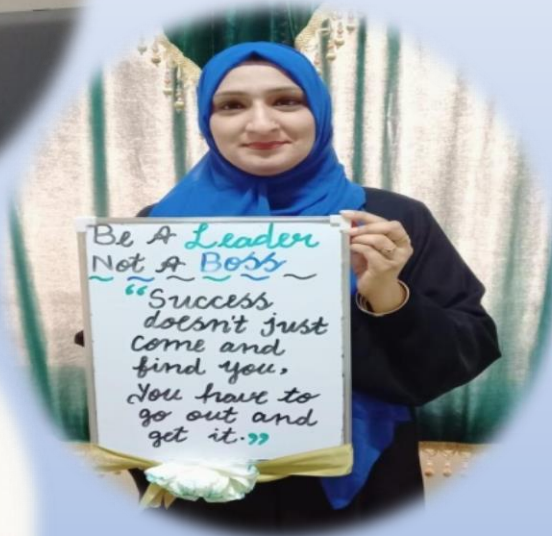 Be A Leader
Not A Boss
“Success
doesn't just
come and
find you,
you have to
go out and
get it.”